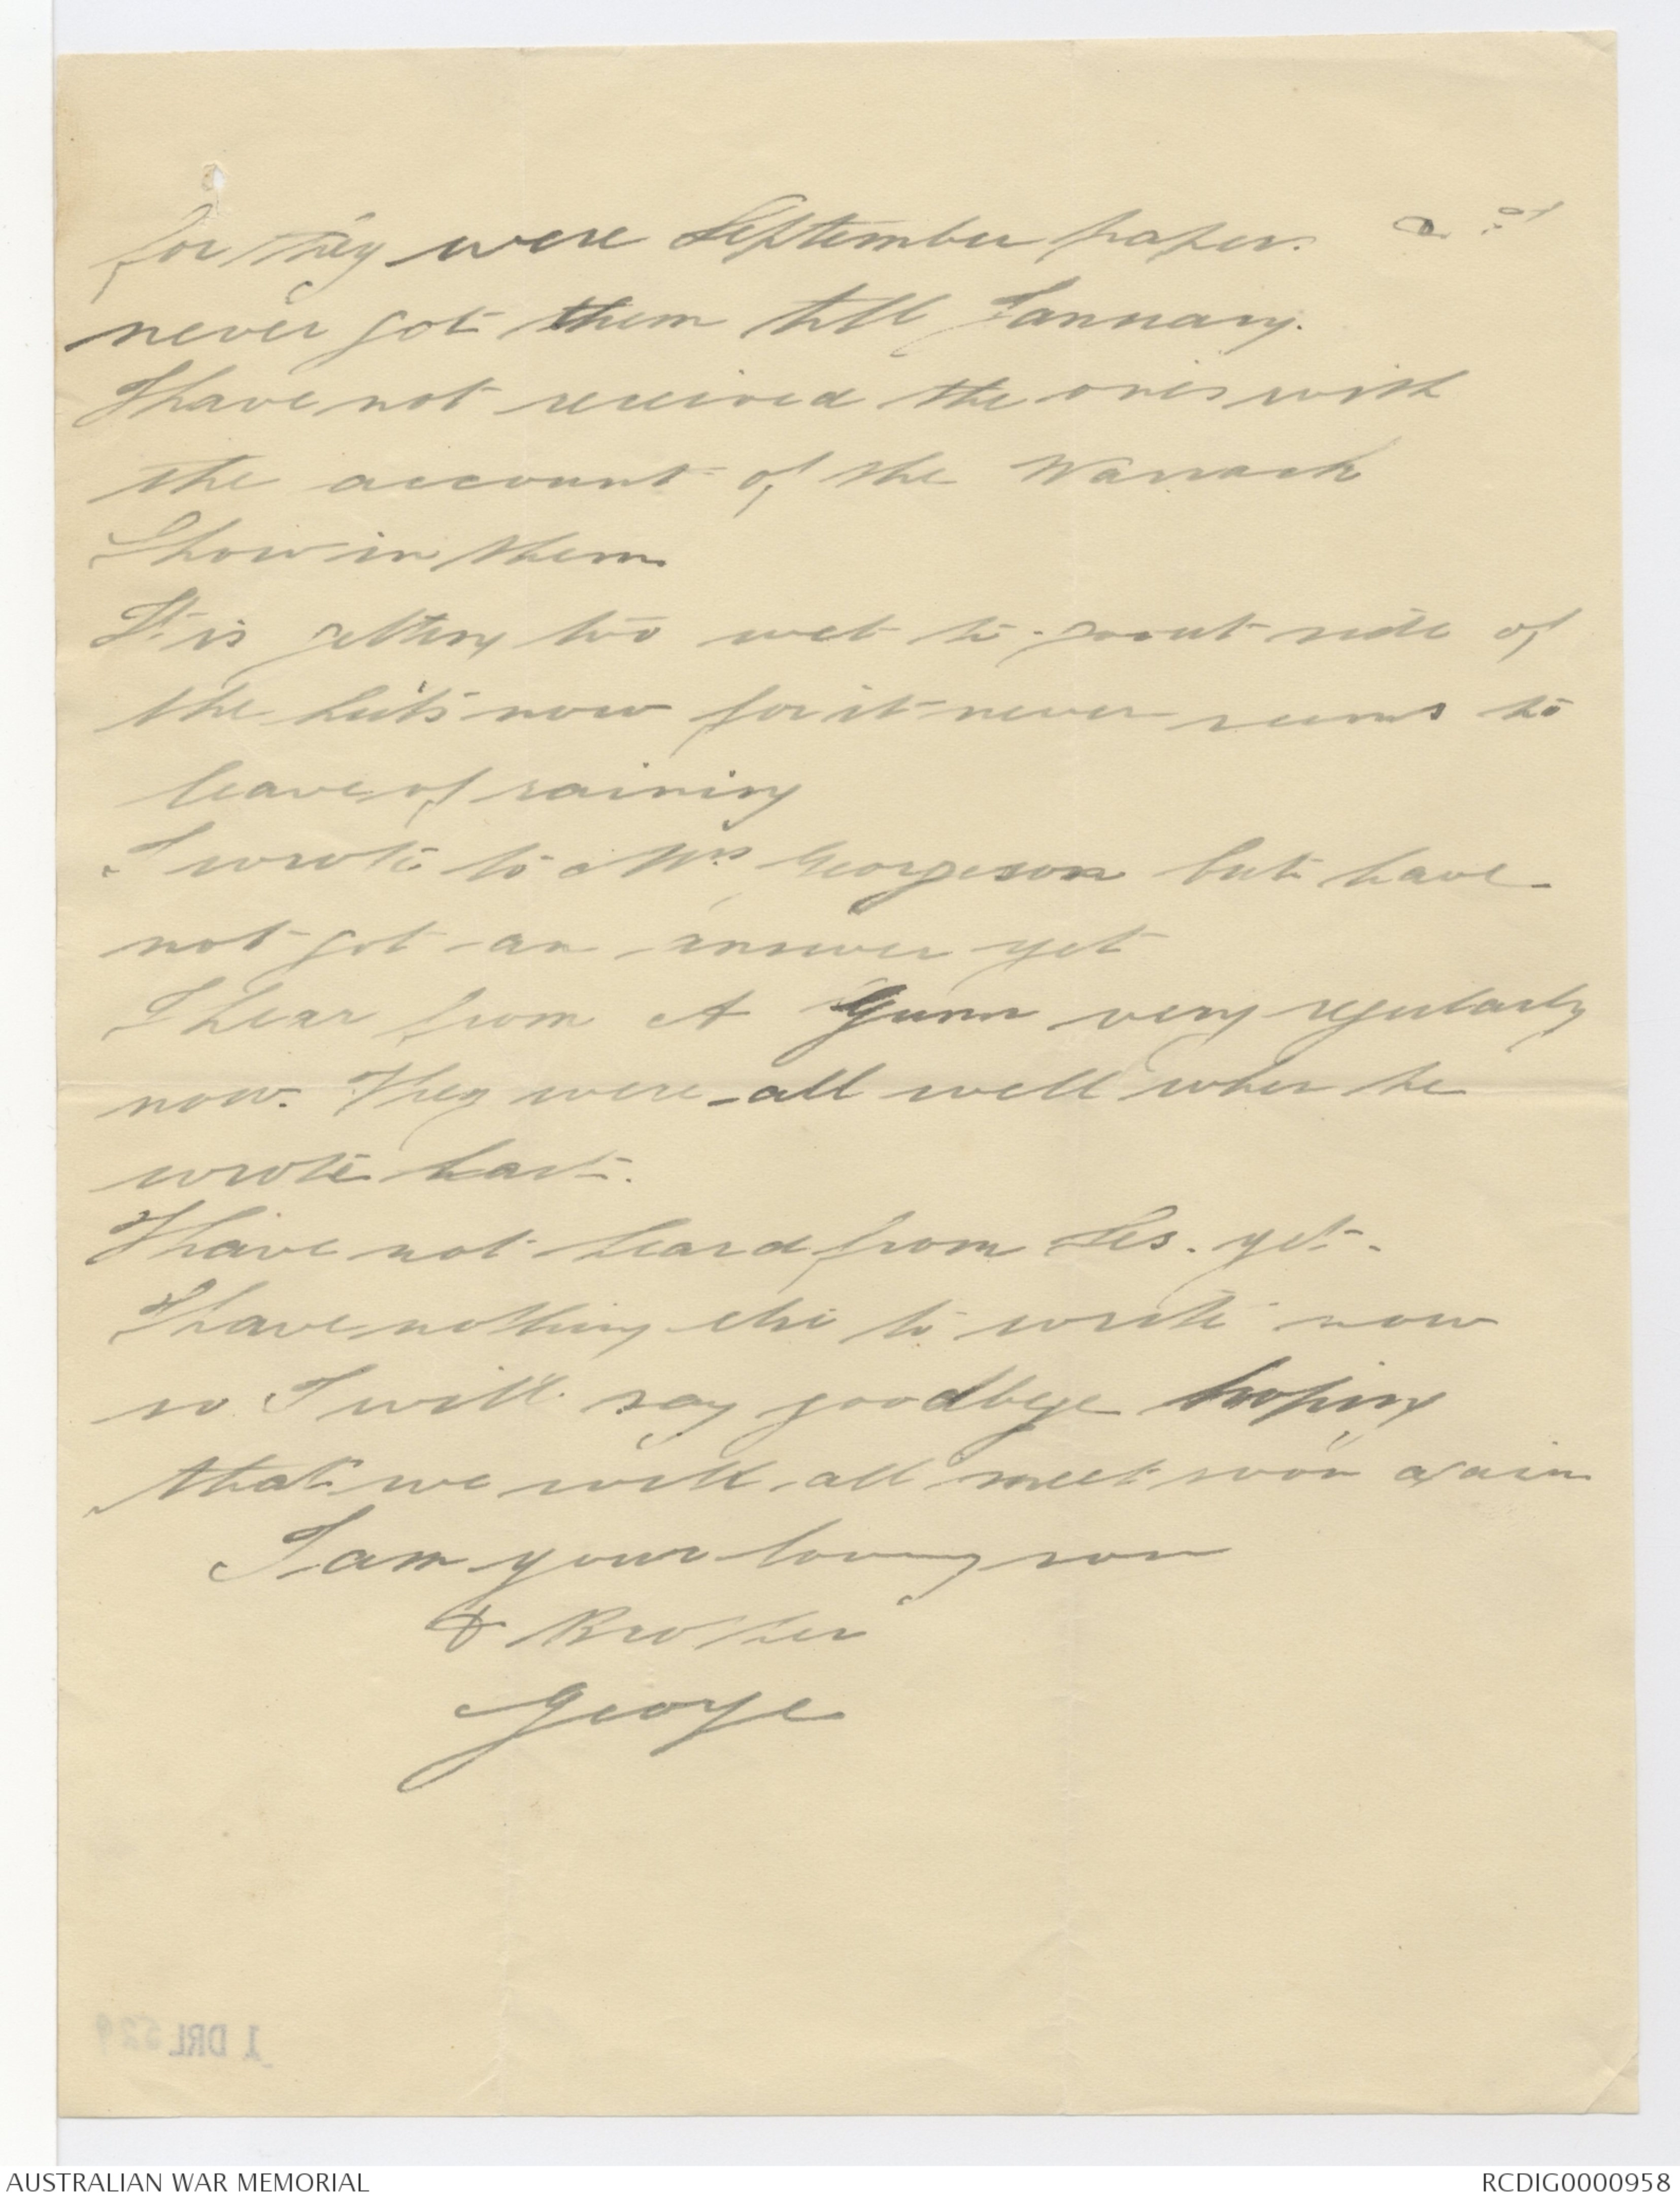 for they were September papers.
never got them till January.
I have not received the ones with
the account of the Warrack
Show in them
It is getting too wet to go out side of
the huts now for it never seems to
leave of raining
I wrote to Mrs Georgeson but have
not got an answer yet
I hear from A Gunn very regularly
now. They were all well when he
wrote last.
I have not heard from Les. yet.
I have nothing else to write now
so I will say goodbye hoping
that we will all meet soon again
I am your loving son
& Brother
George
1 DRL 529
AUSTRALIAN WAR MEMORIAL
RCDIG0000958